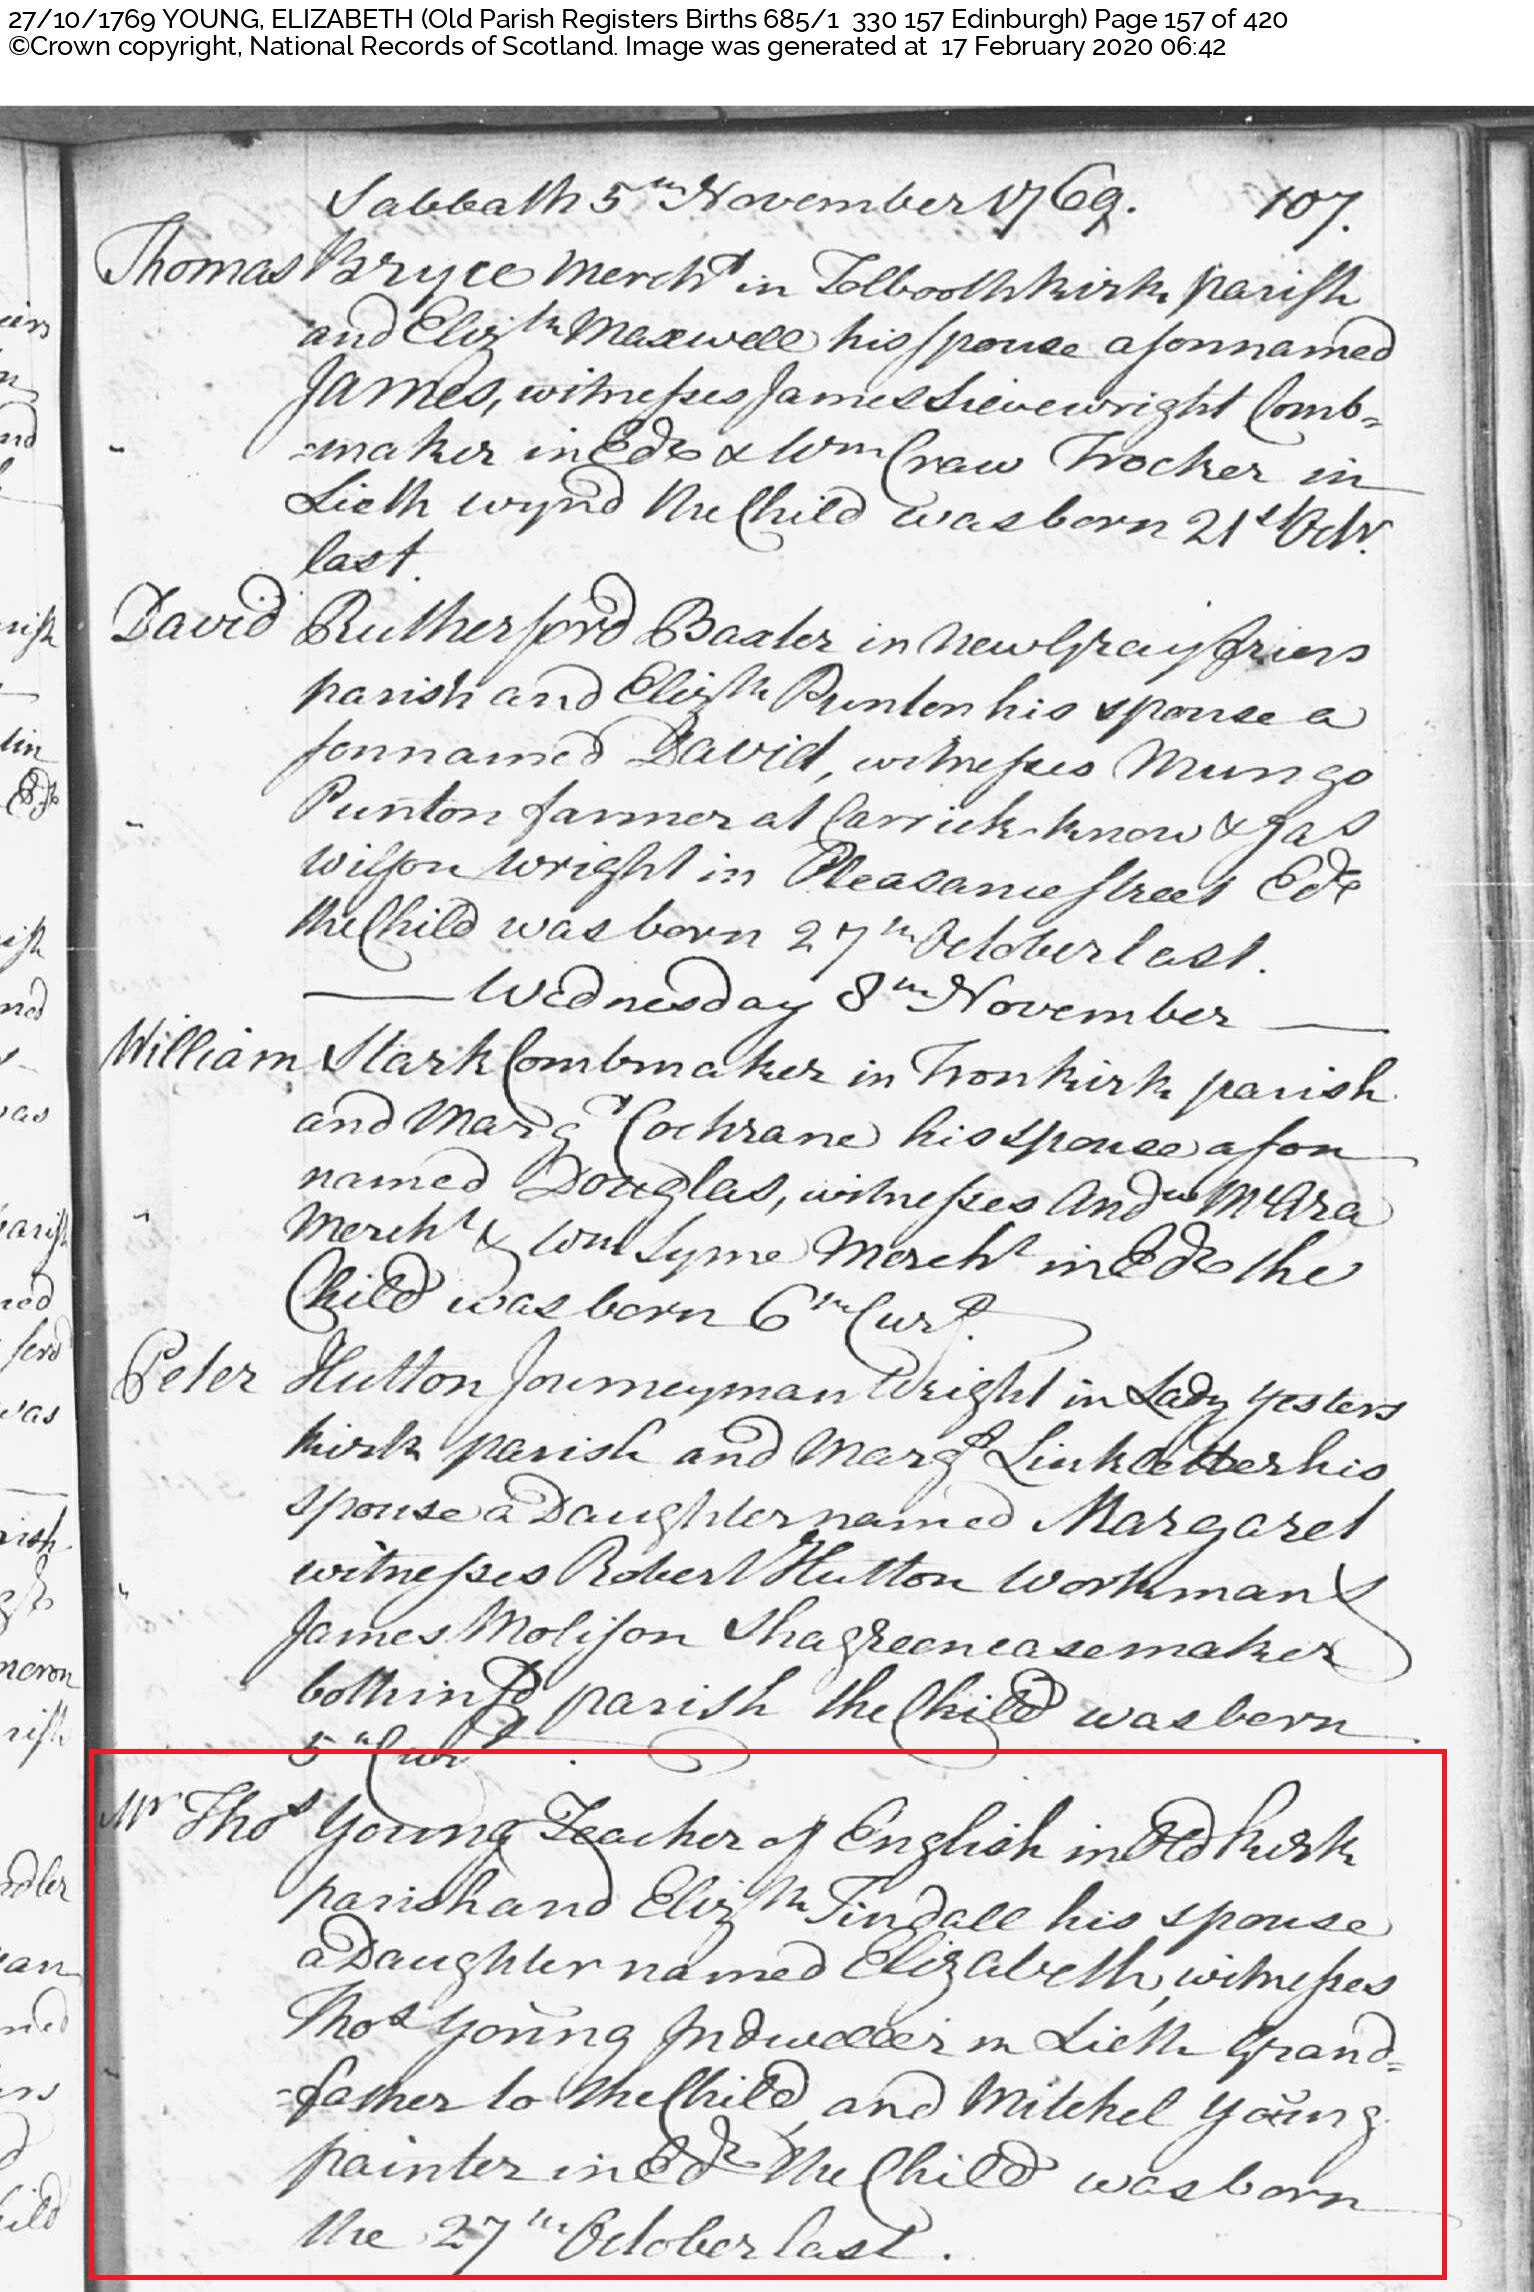 27/10/1769 YOUNG, ELIZABETH (Old Parish Registers Births 685/1 330 157 Edinburgh) Page 157 of 420
©Crown copyright, National Records of Scotland. Image was generated at 17 February 2020 06:42
Sabbath 5th November 1769. 107.
Thomas Bryce Mercht in Tolbooth kirk parish
and Elizth Maxwell his spouse a son named
James, witnesses James Sievewright Comb-
-maker in Edr & Wm Craw Trocker in
Lieth wynd the Child was born 21st Octr.
last.
David Rutherford Baxter in New Grayfriers
parish and Elizth Punton his spouse a
son named David, witnesses Mungo
Punton farmer at Carrick-know & Jas
Wilson Wright in Pleasance street Edr
the Child was born 27th October last.
Wednesday 8th November
William Stark Combmaker in Tronkirk parish
and Margt Cochrane his spouse a son
named Douglas, witnesses Andw McAra
Mercht & Wm Lyme Mercht in Edr the
Child was born 6th Curt.
Peter Hutton Journeyman Wright in Lady Yesters
kirk parish and Margt Linkletter his
spouse a Daughter named Margaret
witnesses Robert Hutton Workman &
James Molison Shagreencasemaker
both in sd parish the Child was born
5th Curt.
Mr Thos Young Teacher of English in Old kirk
parish and Elizth Tindall his spouse
a Daughter named Elizabeth, witnesses
Thos Young Indweller in Lieth Grand-
-father to the Child, and Mitchel Young
painter in Edr the Child was born
the 27th October last.